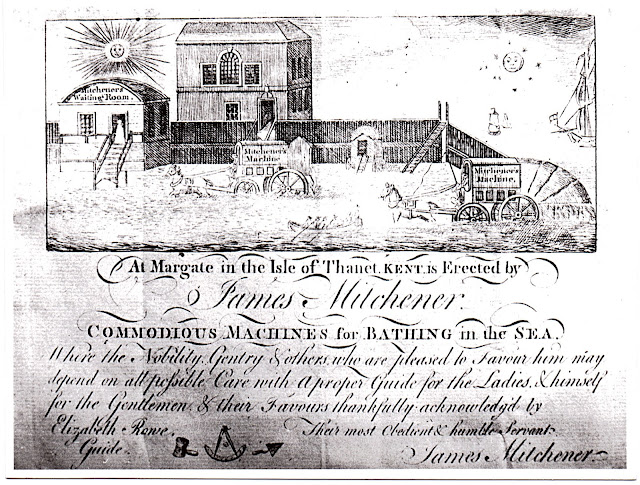 Mitchener's
Waiting Room.
Mitchener's
Machine
Mitchener's
Machine.
At Margate in the Isle of Thanet, KENT, is Erected by
James Mitchener.
COMMODIOUS MACHINES for BATHING in the SEA.
Where the Nobility, Gentry & others, who are pleased to Favour him may
depend on all possible Care with a proper Guide for the Ladies, & himself
for the Gentlemen, & their Favours thankfully acknowledg'd by
Elizabeth Rowe, Their most Obedient & humble Servant
Guide. James Mitchener